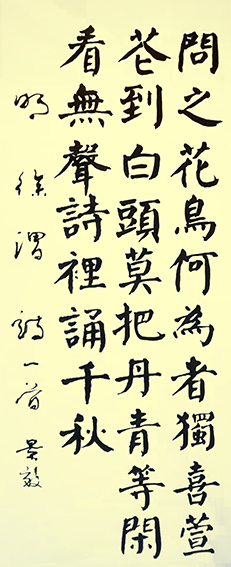 問之花鳥何為者獨喜萱
花到白頭莫把丹青等閑
看無聲詩裡誦千秋
明 徐渭 詩一首 景